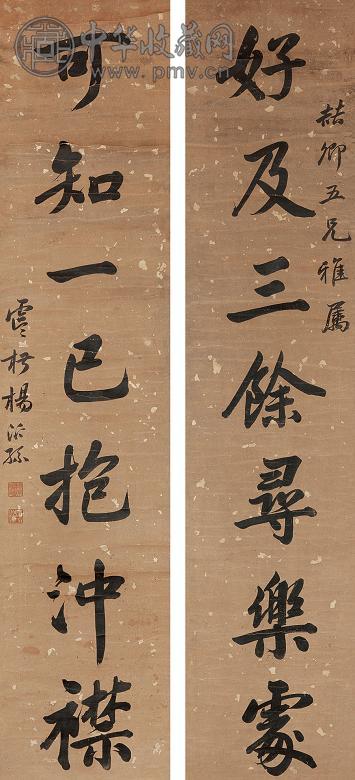 喆卿五兄雅屬
好及三餘尋樂處
可知一已抱沖襟
虞 楊沂孫
中华收藏网
www.pmv.cn